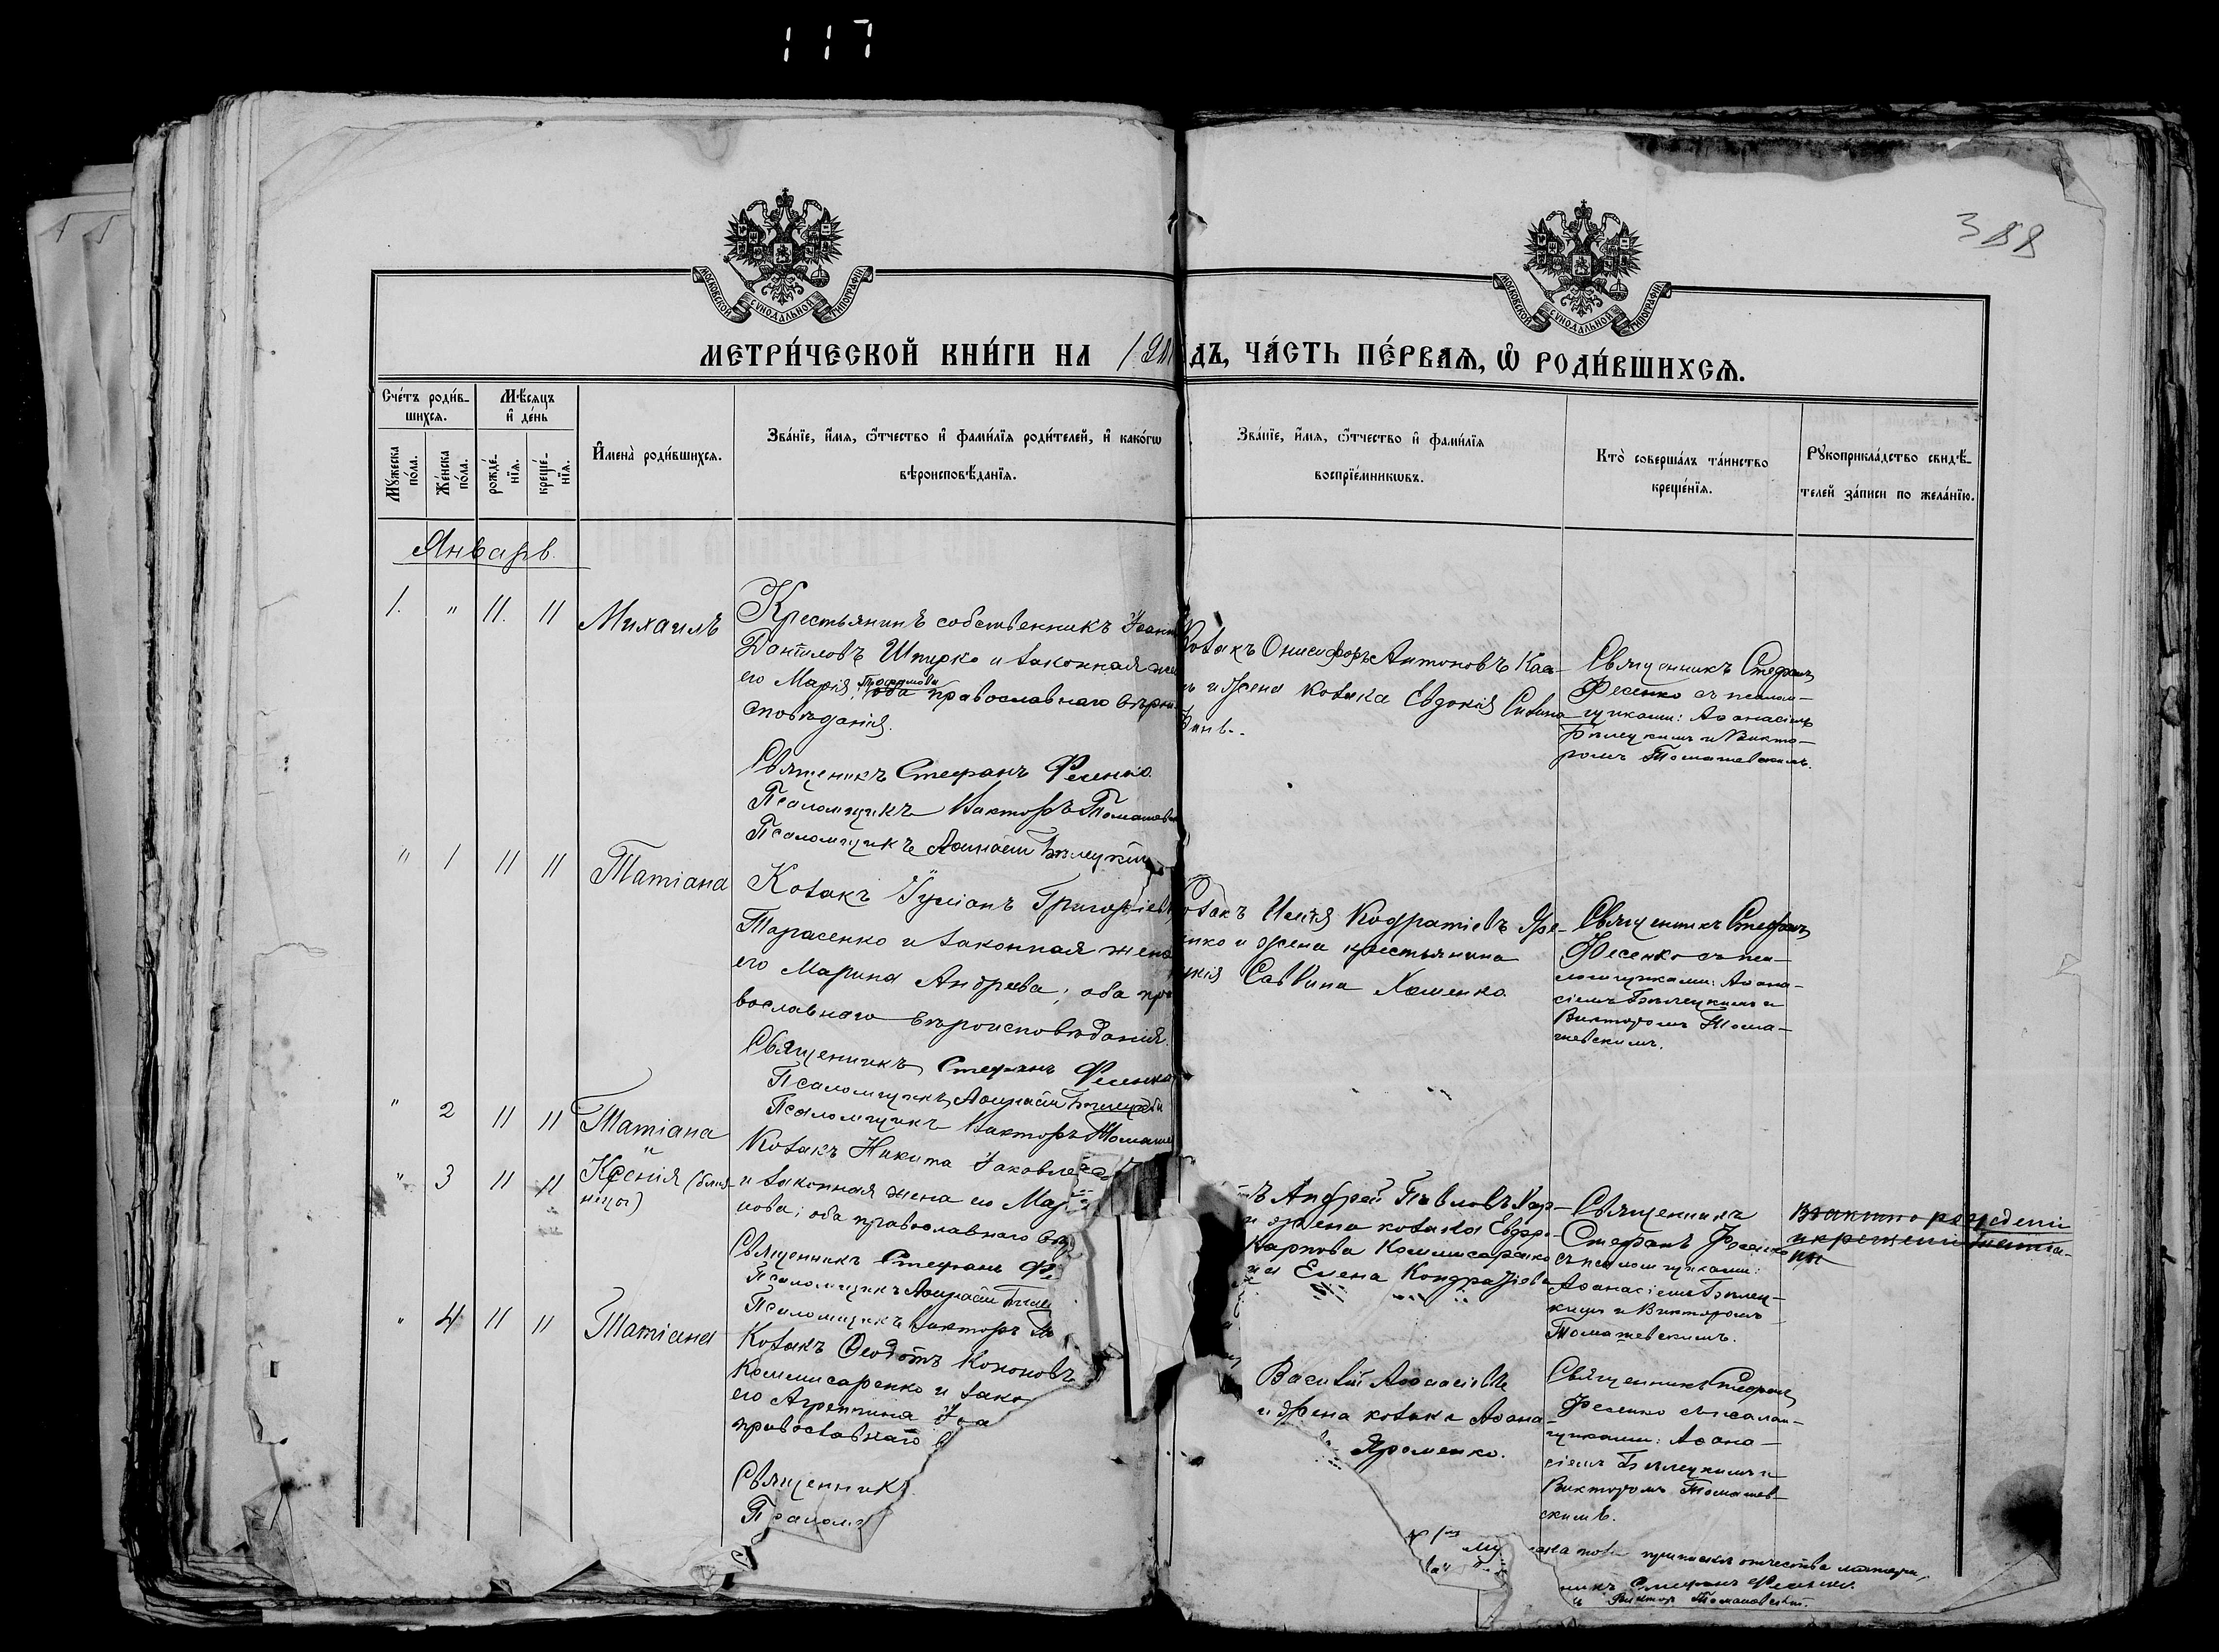 117
388
МОСКОВСКОЙ СУНОДАЛЬНОЙ ТИПОГРАФІИ
МОСКОВСКОЙ СУНОДАЛЬНОЙ ТИПОГРАФІИ
МЕТРИ́ЧЕСКОЙ КНИ́ГИ НА 19 ДЪ, ЧА́СТЬ ПЕ́РВАЯ, Ѡ҆ РОДИ́ВШИХСЯ.
Сче́тъ роди́в-
шихсѧ.
Мꙋ́жеска по́ла.
Же́нска по́ла.
Мѣ́сѧцъ
и҆ де́нь
рожде́-
нїѧ.
креще́-
нїѧ.
И҆мена̀ роди́вшихсѧ.
Зва́нїе, и҆́мѧ, ѻ҆́тчество и҆ фами́лїѧ роди́телей, и҆ како́гѡ
вѣроисповѣ́данїѧ.
Зва́нїе, и҆́мѧ, ѻ҆́тчество и҆ фами́лїѧ
воспрїе́мникѡвъ.
Кто̀ соверша́лъ та́инство
креще́нїѧ.
Рꙋкоприкла́дство свидѣ́-
телей за́писи по жела́нїю.
Январь.
1. " 11. 11 Михаилъ
Крестьянинъ собственникъ Іоанн
Даніиловъ Шпирко и законная же
его Марія оба православнаго вѣрои
сповѣданія.
Священикъ Стефанъ Фесенко
Псаломщикъ Викторъ Томашев
Псаломщикъ Аѳанасій Бѣлецкій
Козакъ Онисифоръ Антоновъ
и жена козака Евдокія
Священникъ Стефанъ
Фесенко съ псалом-
щиками: Аѳанасіемъ
Бѣлецкимъ и Викто-
ромъ Томашевскимъ.
" 1 11 11 Татіана
Козакъ Іуліанъ Григоріев
Тарасенко и законная жена
его Марина Андреева; оба пра
вославнаго вѣроисповѣданія.
Священикъ Стефанъ Фесенко
Псаломщикъ Аѳанасій Бѣлецкій
Псаломщикъ Викторъ Томаше
козакъ Илія Кодратіевъ Яре-
енко и жена крестьянина
Саввина Хоменко
Священникъ Стефанъ
Фесенко съ пса-
ломщиками: Аѳана-
сіемъ Бѣлецкимъ и
Викторомъ Тома-
шевскимъ.
" 2 11 11 Татіана
" 3 11 11 и Ксенія (близ-
нецы)
Козакъ Никита Іаковле
и законная жена его Мар
нова; оба православнаго вѣр
Священникъ Стефанъ Фе
Псаломщикъ Аѳанасій Бѣле
Псаломщикъ Викторъ То
ъ Андрей Павловъ
и жена козака Евфро-
Карпова Коммисаренко
и Елена Кондратіева
Священникъ
Стефанъ Фесенко
съ псаломщиками:
Аѳанасіемъ Бѣлец-
кимъ и Викторомъ
Томашевскимъ.
" 4 11 11 Татіана
Козакъ Ѳеодотъ Кононовъ
Коммисаренко и зако
его Агриппина Іоа
православнаго в
Священник
Псалом
Василій Аѳанасіевъ
и жена козака Аѳана-
Яроменко.
Священникъ Стефанъ
Фесенко съ псалом-
щиками: Аѳана-
сіемъ Бѣлецкимъ и
Викторомъ Томашев-
скимъ.
приписка отчества матери,
никъ Стефанъ Фесенко
Викторъ Томашевскій.